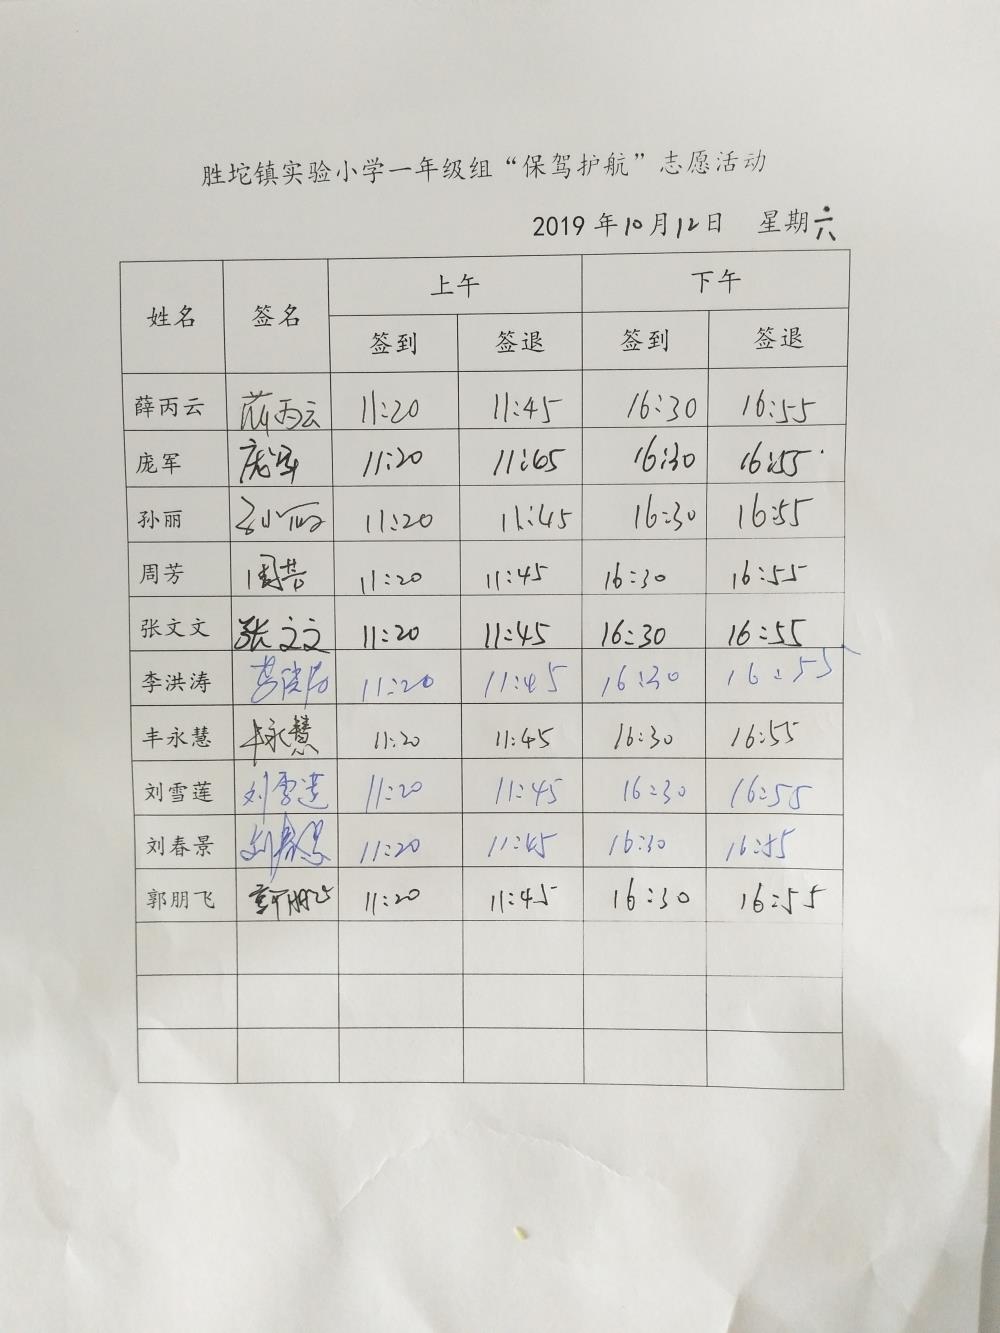 胜坨镇实验小学一年级组“保驾护航”志愿活动
2019 年 10 月 12 日 星期六
姓名 签名 上午 下午
签到 签退 签到 签退
薛丙云 薛丙云 11:20 11:45 16:30 16:55
庞军 庞军 11:20 11:45 16:30 16:55
孙丽 孙小丽 11:20 11:45 16:30 16:55
周芳 周芳 11:20 11:45 16:30 16:55
张文文 张文文 11:20 11:45 16:30 16:55
李洪涛 11:20 11:45 16:30 16:55
丰永慧 丰永慧 11:20 11:45 16:30 16:55
刘雪莲 刘雪莲 11:20 11:45 16:30 16:55
刘春景 刘春景 11:20 11:45 16:30 16:55
郭朋飞 郭朋飞 11:20 11:45 16:30 16:55